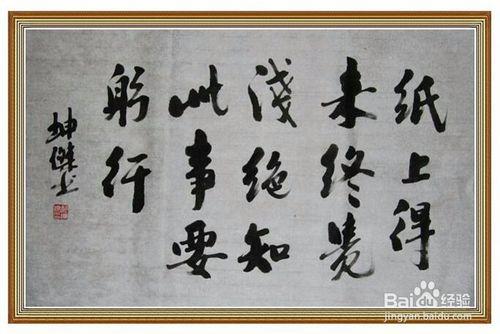 纸上得
来终觉
淺绝知
此事要
躬行
坤傑书
Baidu经验
jingyan.baidu.com